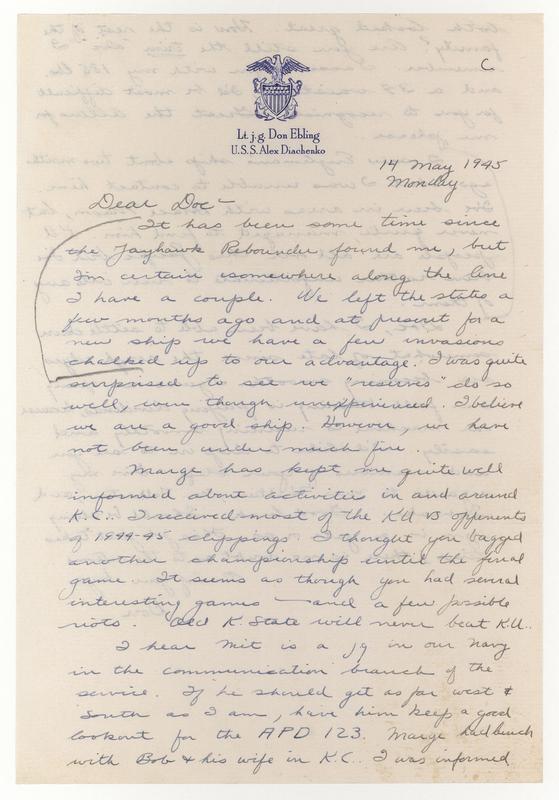 C
Lt j.g. Don Ebling
U.S.S. Alex Diachenko
14 May 1945
Monday
Dear Doc—
It has been some time since
the Jayhawk Rebounder found me, but
I'm certain somewhere along the line
I have a couple. We left the states a
few months ago and at present for a
new ship we have a few invasions
chalked up to our advantage. I was quite
surprised to see we "reserves" do so
well, even though unexperienced. I believe
we are a good ship. However, we have
not been under much fire.
Marge has kept me quite well
informed about activities in and around
K.C.. I received most of the KU vs opponents
of 1944-45 clippings. I thought you bagged
another championship until the final
game. It seems as though you had several
interesting games — and a few possible
riots. Old K. State will never beat K.U..
I hear Mit is a jg in our Navy
in the communication branch of the
service. If he should get as far west &
south as I am, have him keep a good
lookout for the APD 123. Marge had lunch
with Bob & his wife in K.C.. I was informed